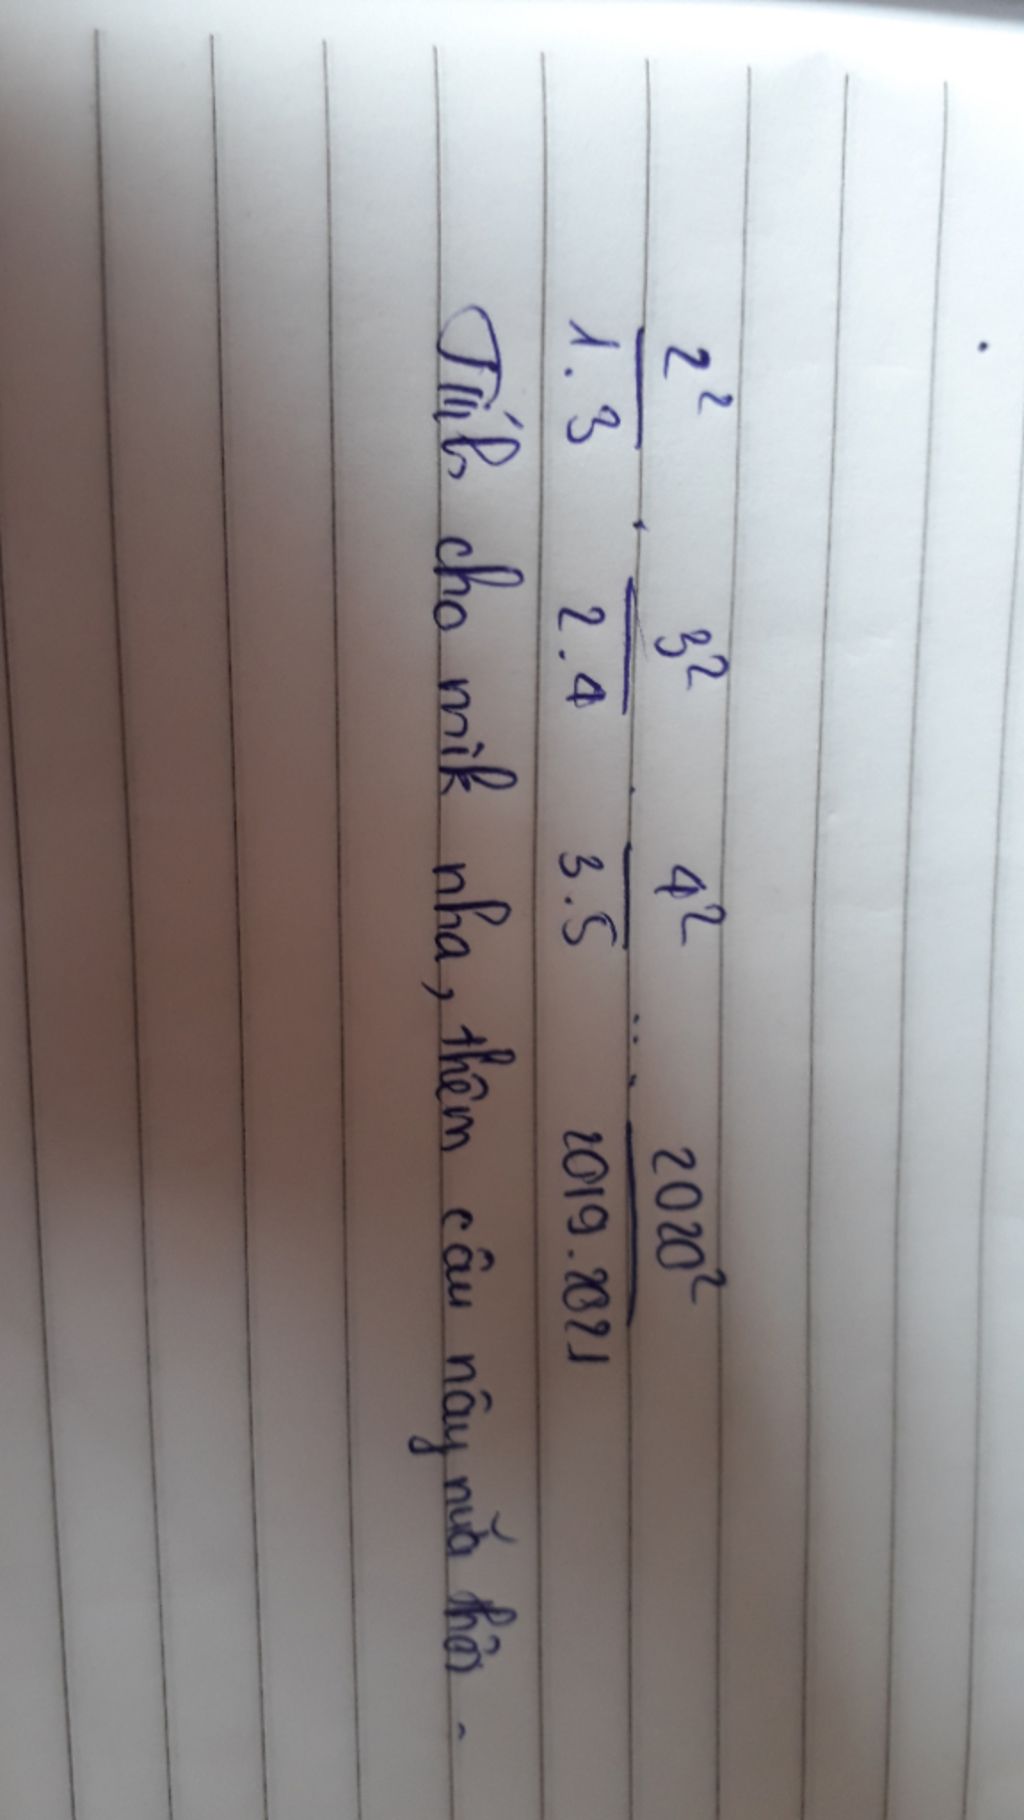 2² / 1.3 . 3² / 2.4 . 4² / 3.5 ... 2020² / 2019.2021
Tính cho mik nha, thêm câu nây nữa thôi.